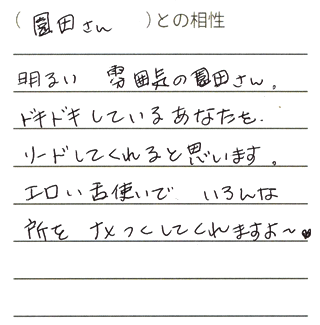 (園田さん)との相性
明るい 雰囲気の園田さん。
ドキドキしているあなたを.
リードしてくれると思います。
エロい舌使いで いろんな
所を ナメっくしてくれますよ〜♥